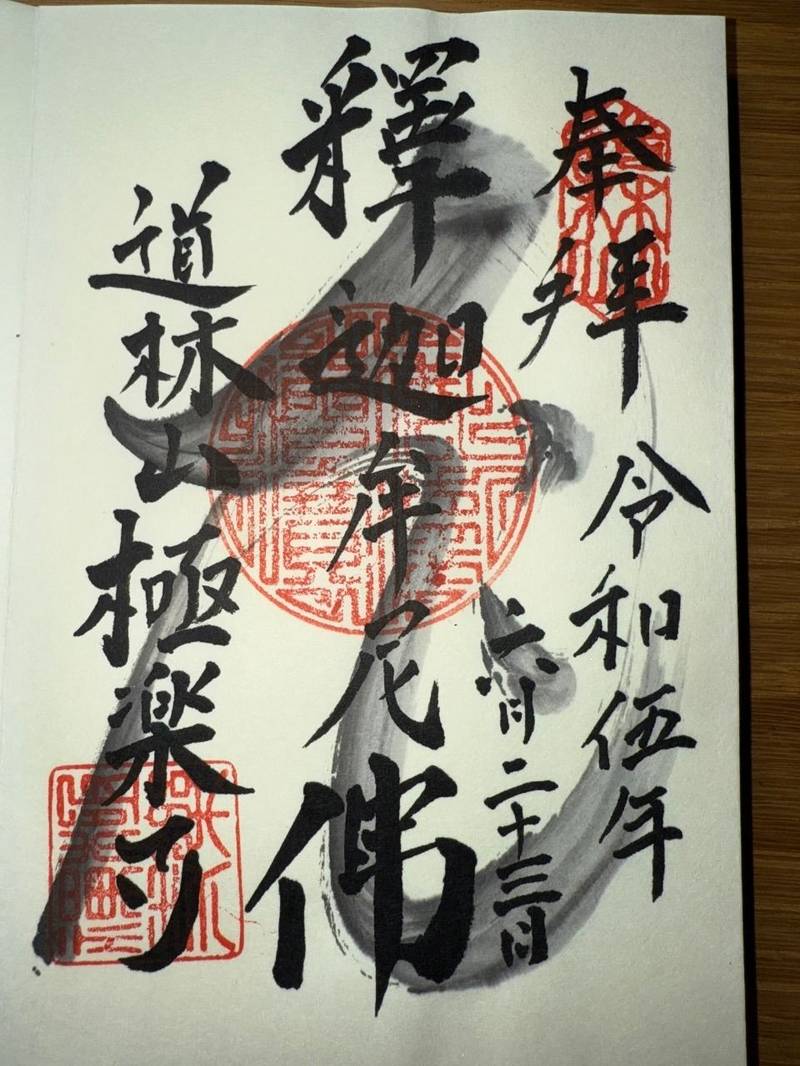 奉拝
令和伍年
六月二十三日
釋迦牟尼佛
道林山極楽寺